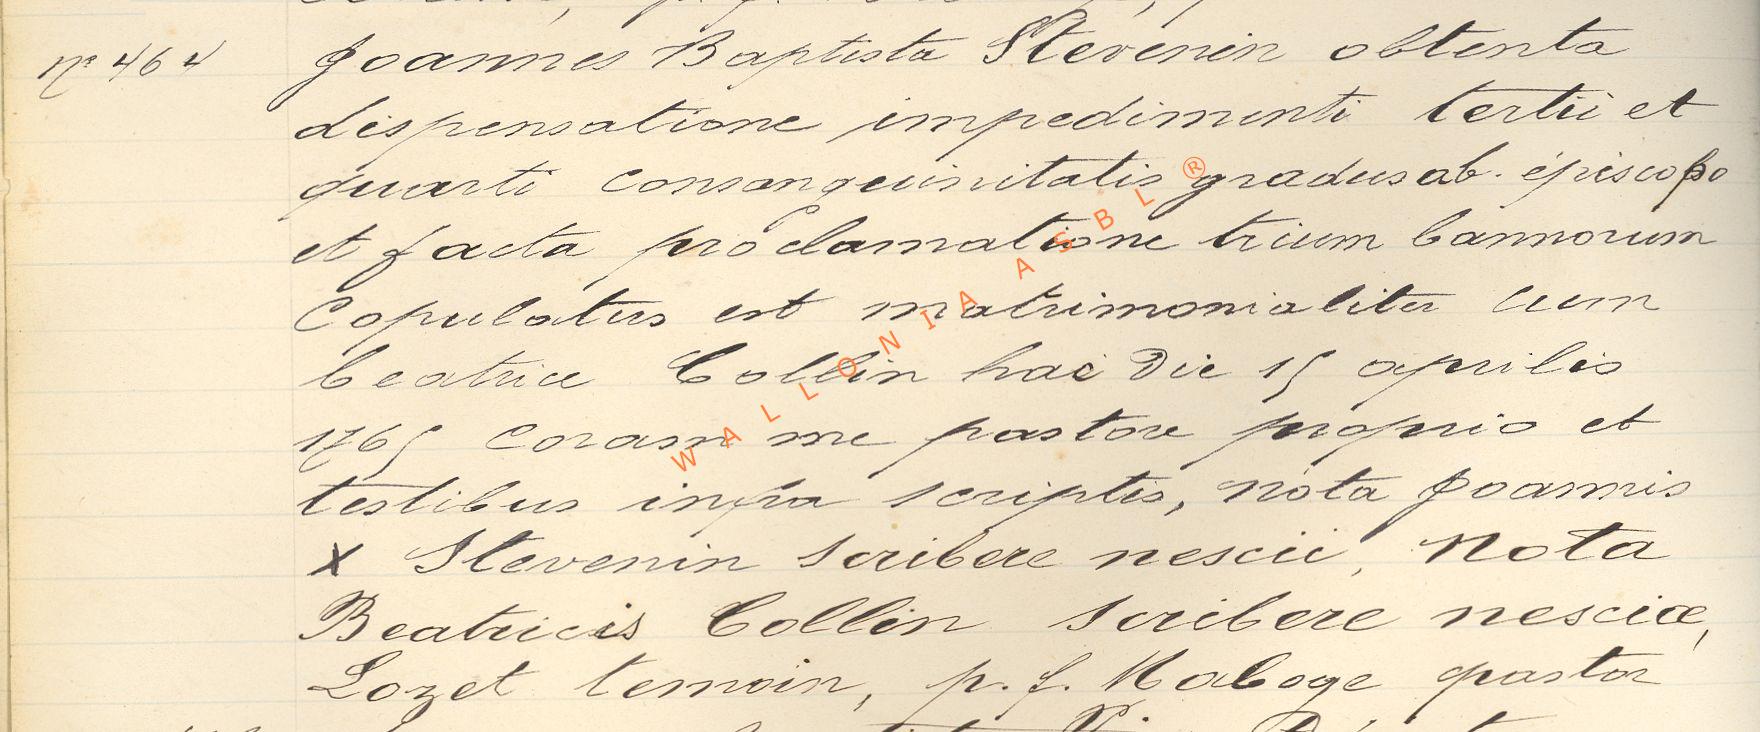 nº 464 Joannes Baptista Stevenin obtenta
dispensatione impedimenti tertii et
quarti consanguinitatis gradus ab. épiscopo
et facta proclamatione trium bannorum
copulatus est matrimonialiter cum
beatrice Collin hac die 15 aprilis
1765 coram me pastore proprio et
testibus infra scriptis, nota Joannis
x Stevenin scribere nescii, Nota
Beatricis Collin scribere nesciæ,
Lozet temoin, p. f. Maboge pastor
WALLONIA ASBL ®